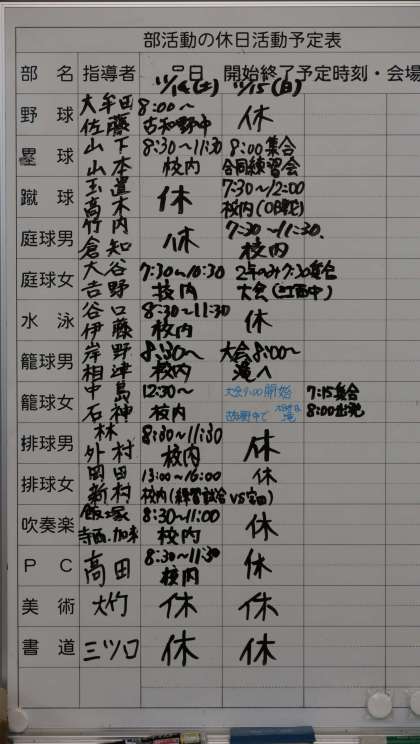 部活動の休日活動予定表
部 名 指導者 月日 開始終了予定時刻・会場
11/14(土) 11/15(日)
野 球 大牟田 佐藤 8:00〜 古知野中 休
塁 球 山下 山本 8:30〜11:30 校内 8:00集合 合同練習会
蹴 球 玉置 高木 休 7:30〜12:00 校内
庭球男 竹内 倉知 休 7:30〜11:30 校内
庭球女 大谷 吉野 7:30〜10:30 校内 2年のみ7:30集合 大会
水 泳 谷口 伊藤 8:30〜11:30 校内 休
籠球男 岸野 相津 8:30〜 校内 大会8:00〜 滝へ
籠球女 中島 石神 12:30〜 校内 大会9:00開始 7:15集合 8:00出発
排球男 林 外村 8:30〜11:30 校内 休
排球女 岡田 新村 13:00〜16:00 校内(練習試合 VS 宮田) 休
吹奏楽 飯塚 寺西・加来 8:30〜11:00 校内 休
P C 高田 8:30〜11:30 校内 休
美 術 大竹 休 休
書 道 三ツ口 休 休